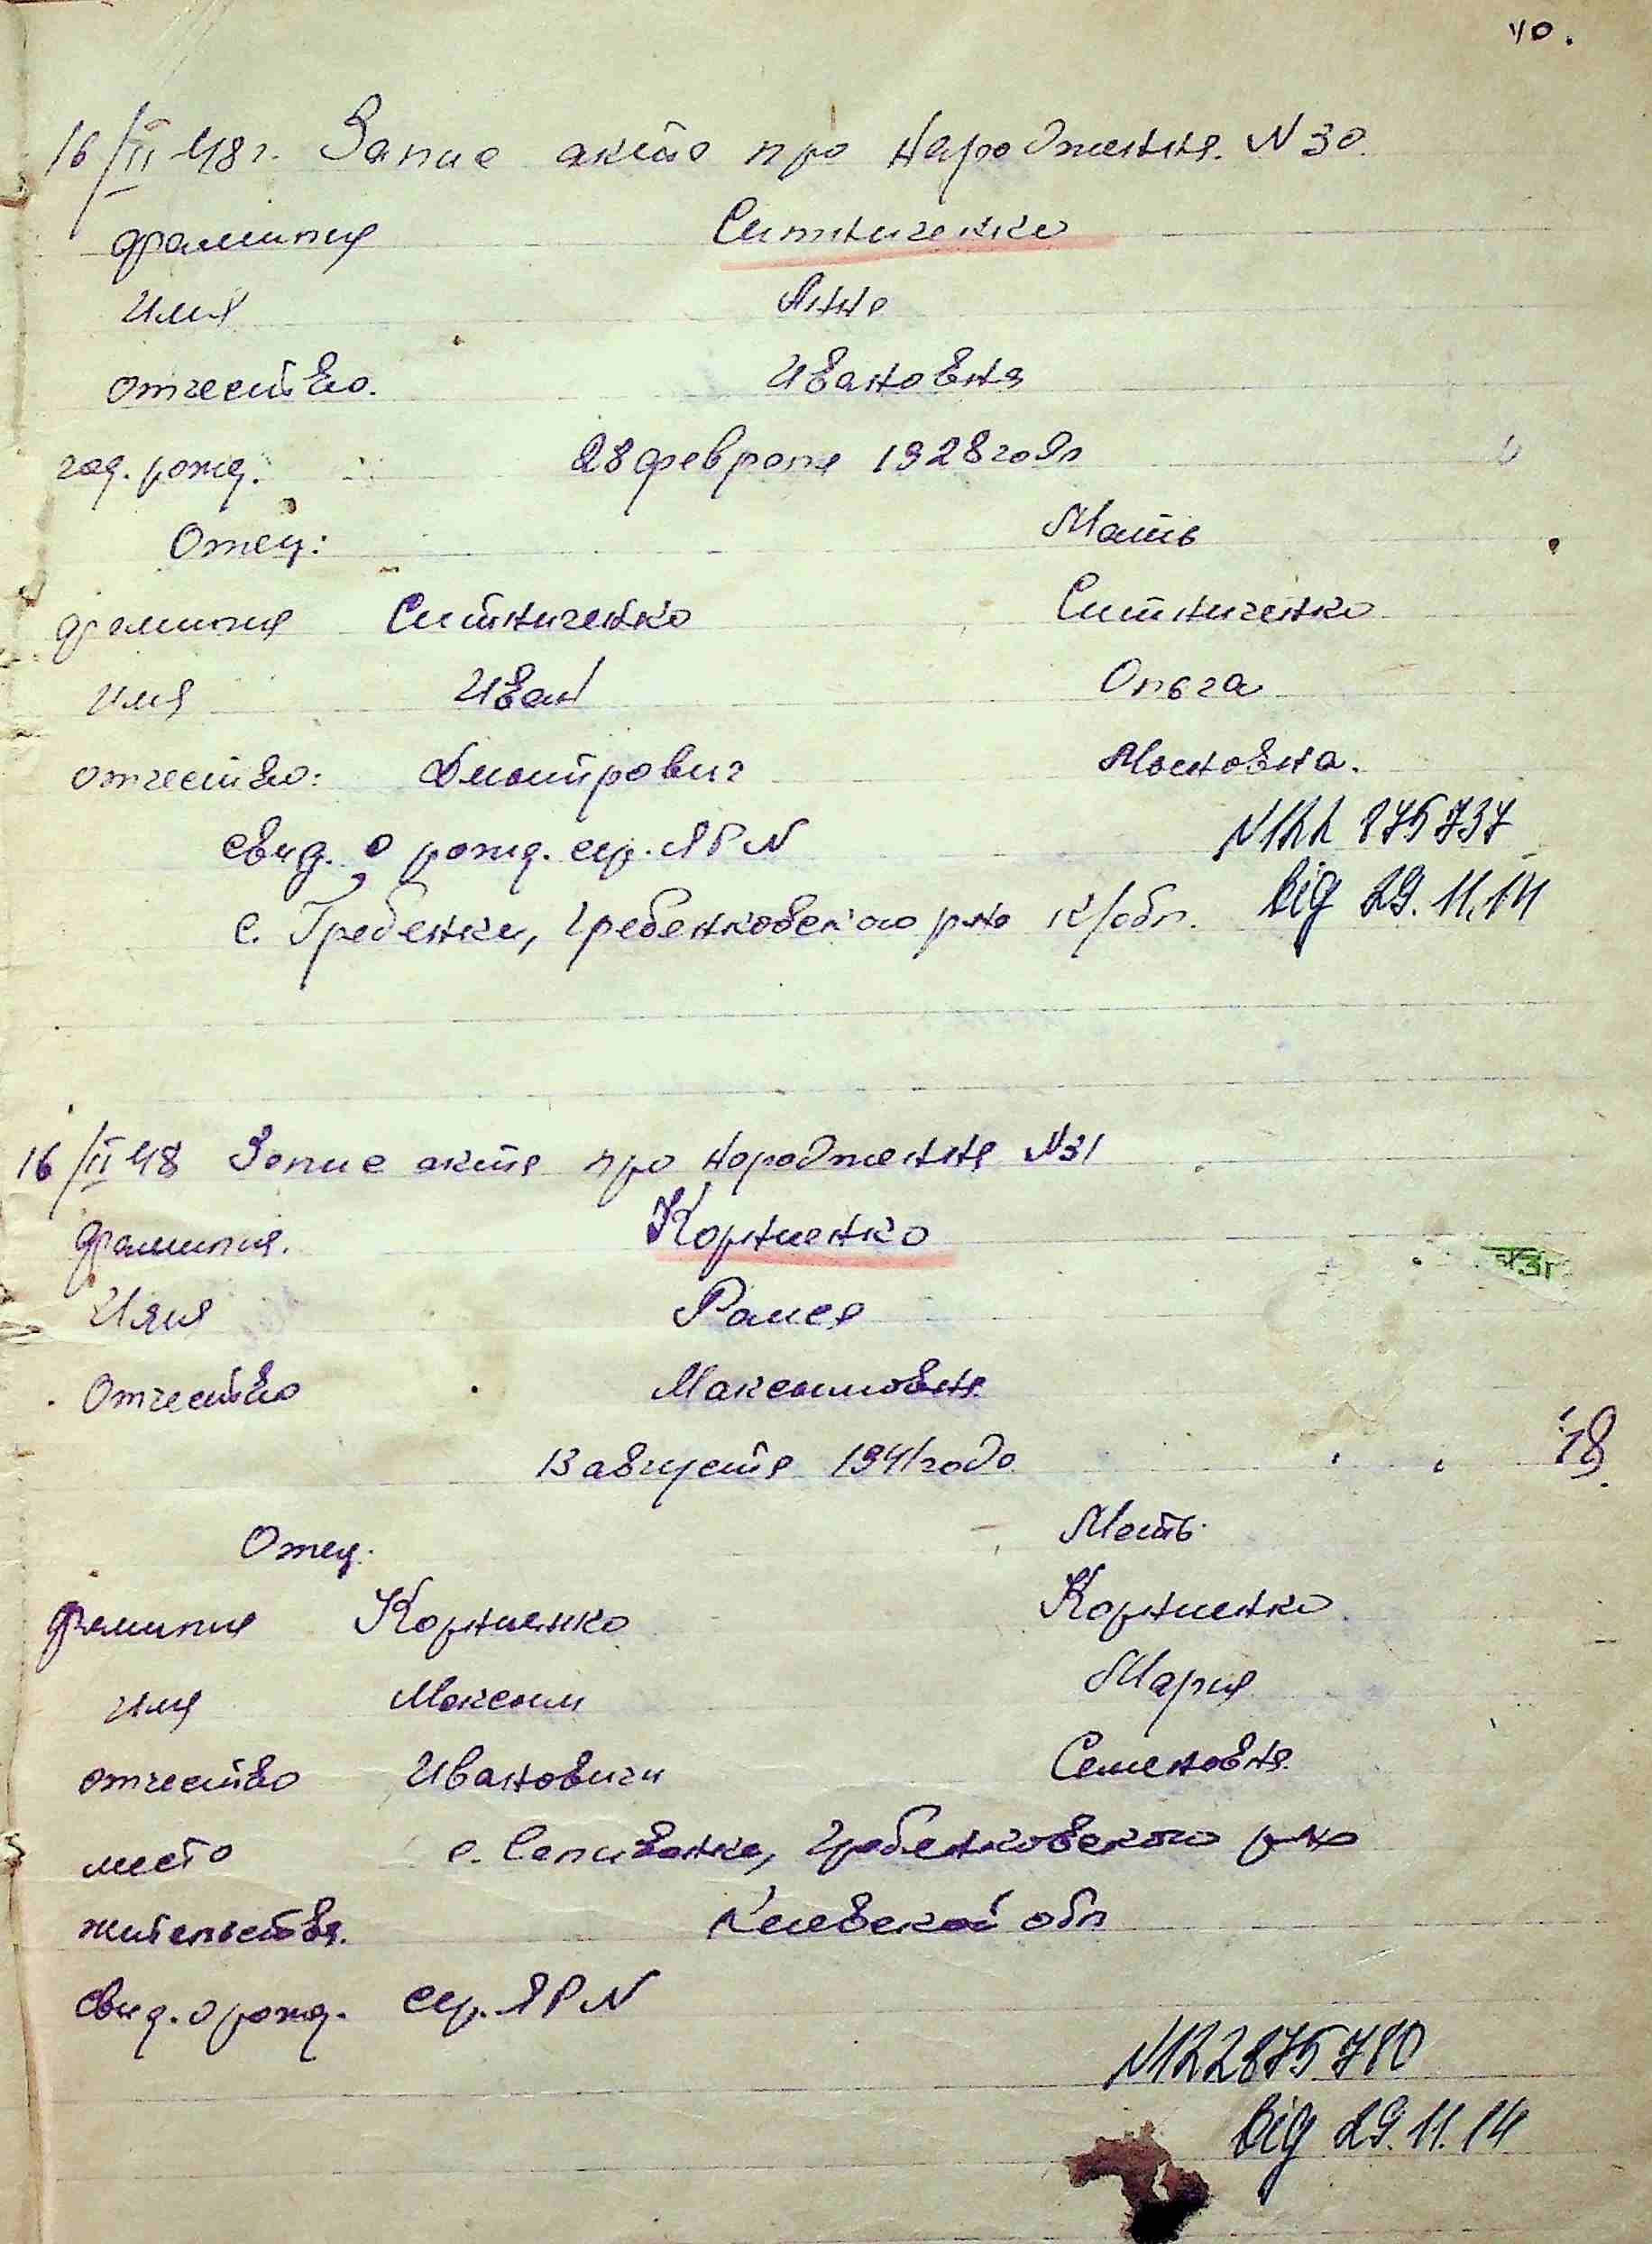 40.
16/II 48 г. Запис акта про народження. N 30.
фамилия Ситниченко
Имя Анна
отчество. Ивановна
год. рожд. 28 февраля 1928 года
Отец: Мать
фамилия Ситниченко Ситниченко
имя Иван Ольга
отчество: Дмитрович
свид. о рожд. сер. ЯР N N122 875737
с. Гребенки, Гребенковского р-на К/обл. від 29.11.14
16/II 48 Запис акта про народження N 31
фамилия. Корниенко
Имя Раиса
Отчество Максимовна
13 августа 1941 года 18.
Отец. Мать.
фамилия Корниенко Корниенко
имя Максим Мария
отчество Иванович Семеновна.
место с. Саливонки, Гребенковского р-на
жительства. Киевской обл
свид. о рожд. сер. ЯР N
N122875780
від 29.11.14